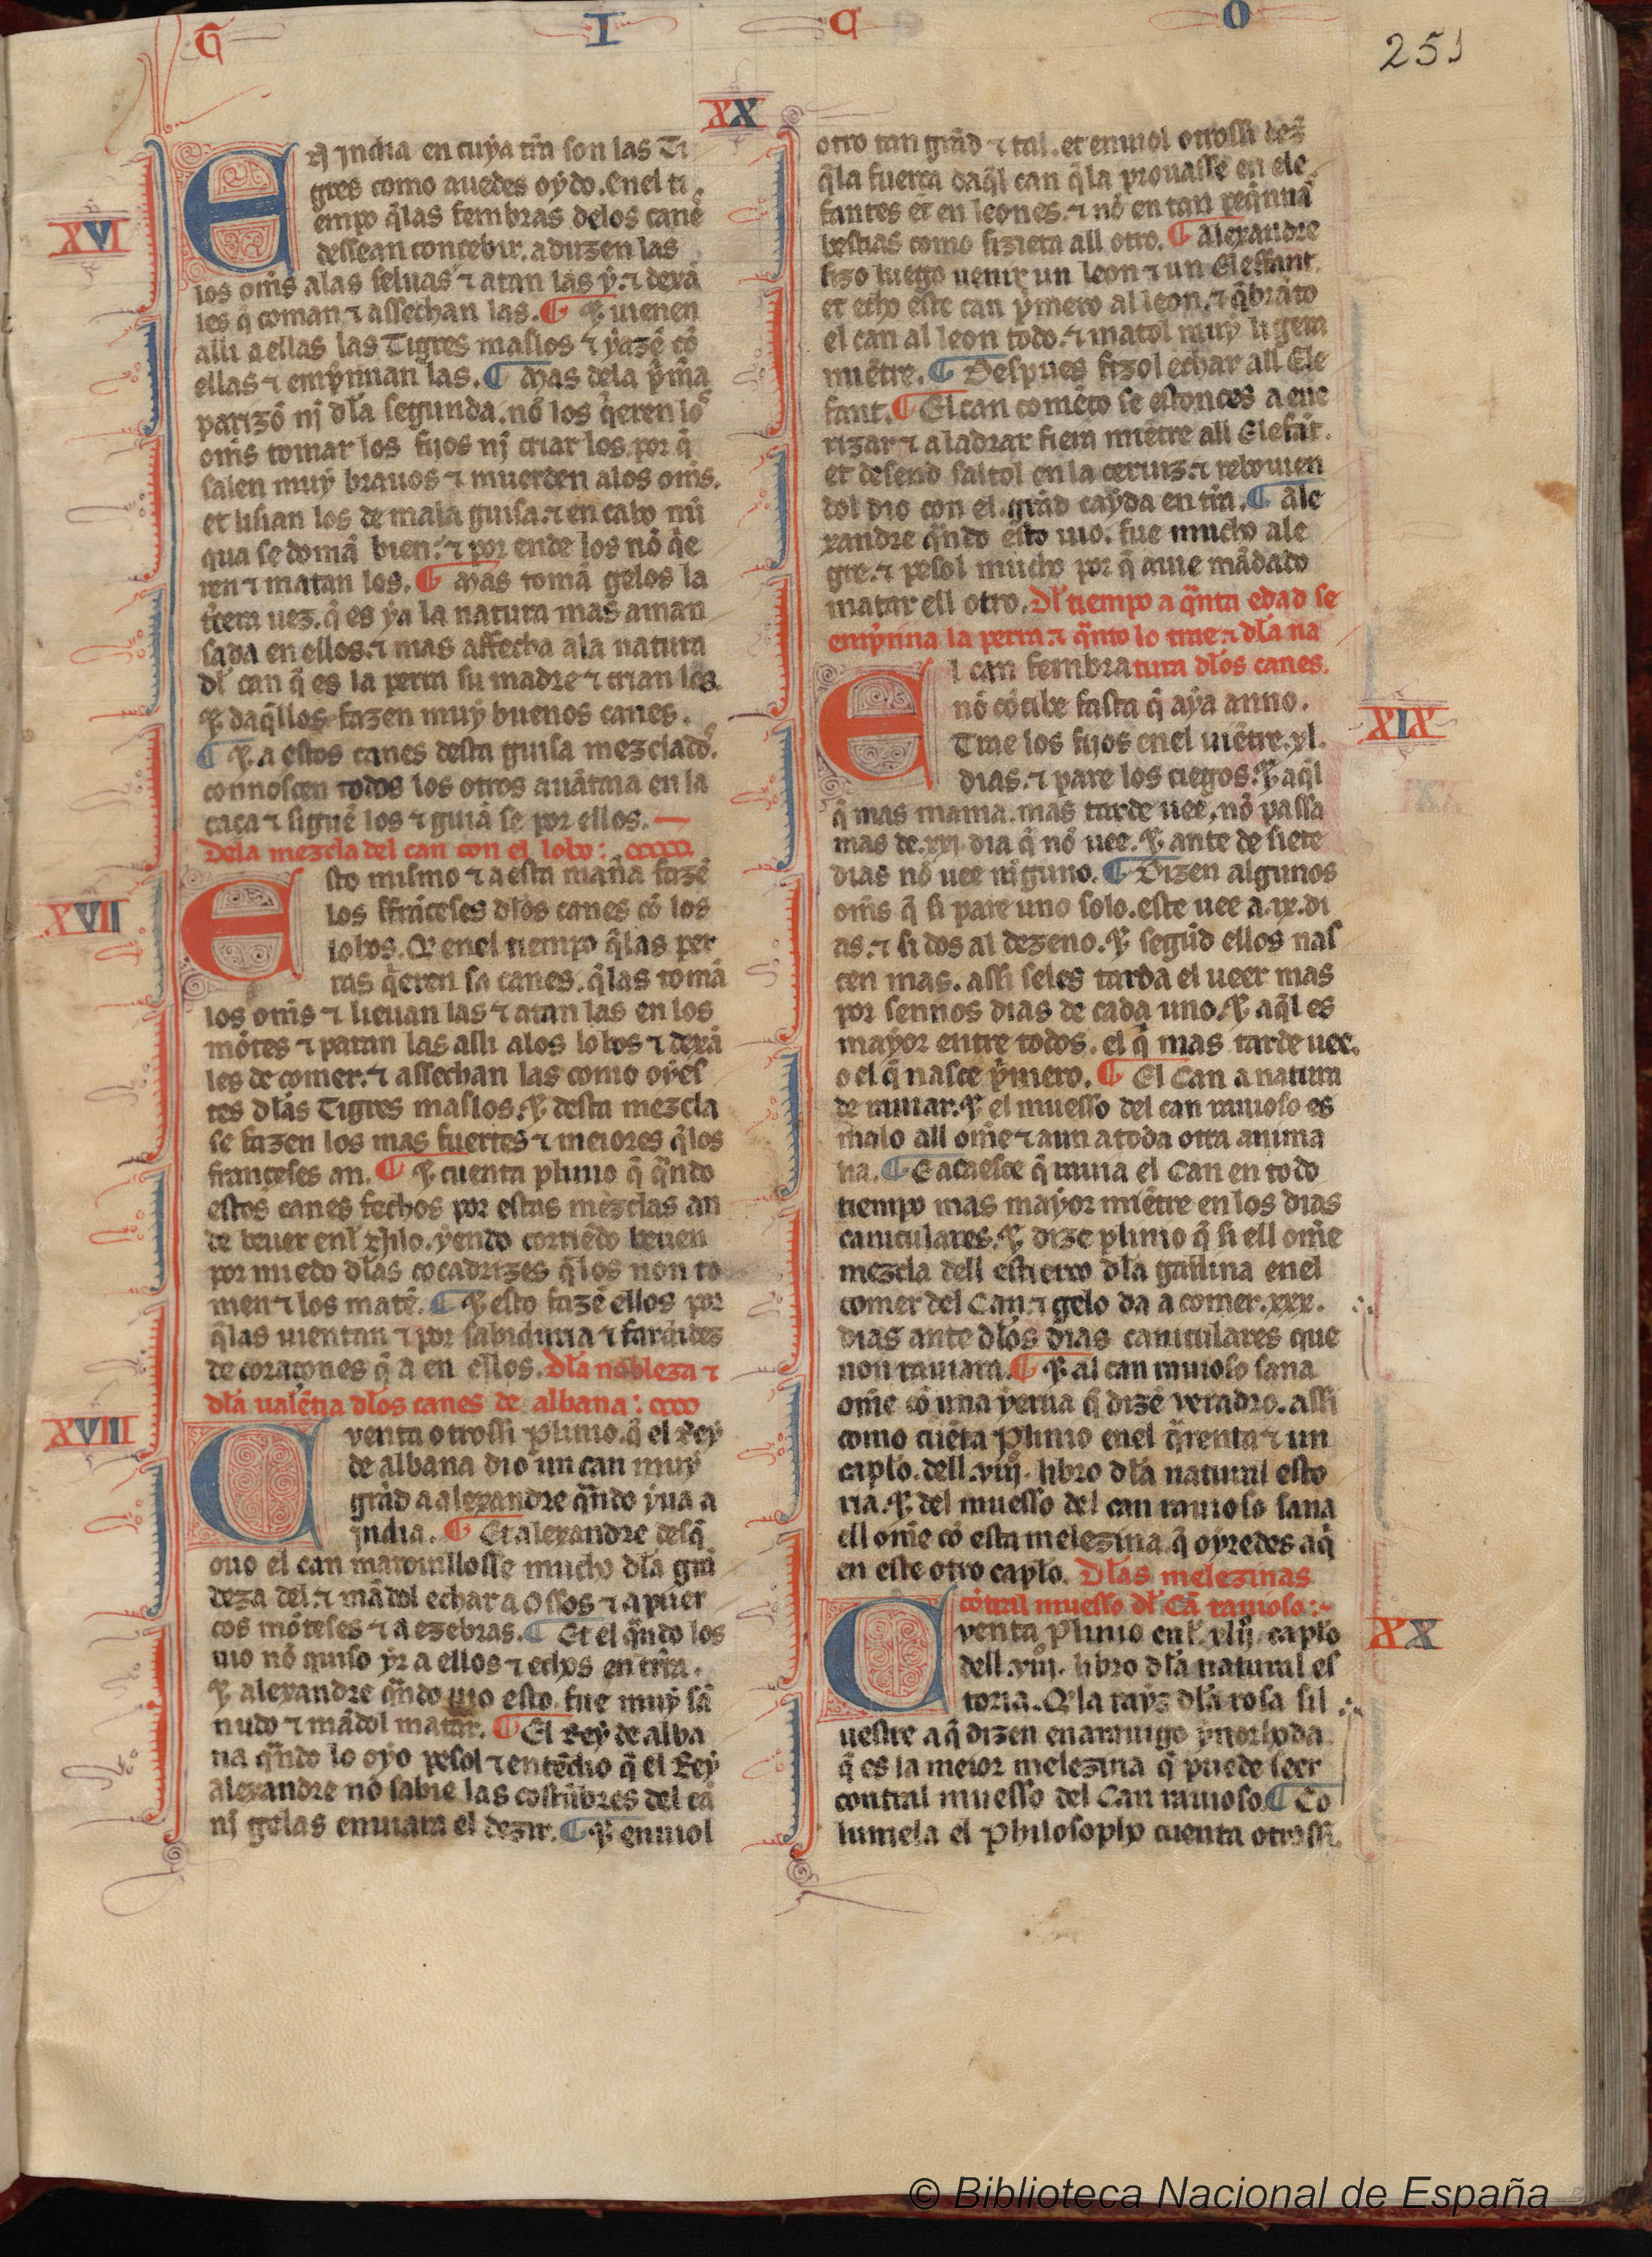 G I C O
251
XX
XVI
En jndia en cuya tr̃ra son las Ti
gres como auedes oydo. Enel ti
empo q̃las fembras delos canẽs
dessean concebir. aduzen las
los om̃s alas seluas ⁊ atan las y. ⁊ dexã
les q̃ coman ⁊ assechan las. ¶ ⁊ uienen
alli aellas las Tigres maslos ⁊ yazẽ cõ
ellas ⁊ emprinnan las. ¶ Mas dela p̃ma
parizõ nj dl̃a segunda. nõ los q̃eren lo
om̃s tomar los fijos nj criar los. por q̃
salen muy brauos ⁊ muerden alos om̃s.
et lisian los de mala guisa. ⁊ en cabo nũ
qua se domã bien. ⁊ por ende los nõ q̃e
ren ⁊ matan los. ¶ Mas tomã gelos la
t̃cera uez. q̃ es ya la natura mas aman
sada en ellos. ⁊ mas affecha ala natura
dl̃ can q̃ es la perra su madre ⁊ crian los.
⁊ daq̃llos fazen muy buenos canes.
¶ ⁊ a estos canes desta guisa mezclados.
connoscen todos los otros auãtaia en la
caça ⁊ siguẽ los ⁊ guiã se por ellos.
Dela mezcla del can con el lobo:
XVII
Esto mismo ⁊ a esta mañã fazẽ
los ffrãceses dl̃os canes cõ los
lobos. Q̃ enel tiempo q̃las per
ras q̃eren sa canes. q̃las tomã
los om̃s ⁊ lieuan las ⁊ atan las en los
mõtes ⁊ paran las assi alos lobos ⁊ dexã
les de comer. ⁊ assechan las como oyes
tes dl̃as Tigres maslos. ⁊ desta mezcla
se fazen los mas fuertes ⁊ meiores q̃los
franceses an. ¶ ⁊ cuenta plinio q̃ q̃ndo
estos canes fechos por estas mezclas an
de beuer enl̃ Nilo. yendo corriẽdo beuen
por miedo dl̃as cocadrizes q̃los non to
men ⁊ los matẽ. ¶ ⁊ esto fazẽ ellos por
q̃las uientan ⁊ por sabiduria ⁊ fardidez
de coraçones q̃ a en ellos. Dl̃a nobleza ⁊
dl̃a ualẽtia dl̃os canes de albana:
XVIII
Cuenta otrossi Plinio. q̃ el Rey
de albana dio un can muy
grãd a alexandre q̃ndo yua a
jndia. ¶ Et alexandre desq̃
ouo el can marauillosse mucho dl̃a grã
deza del. ⁊ mãdol echar a Ossos ⁊ a puer
cos mõteses ⁊ a ezebras. ¶ Et el q̃ndo los
uio nõ quiso yr a ellos ⁊ echos en tr̃ra.
⁊ alexandre q̃ndo uio esto. fue muy sã
nudo ⁊ mãdol matar. ¶ El Rey de alba
na q̃ndo lo oyo pesol ⁊ entẽdio q̃ el Rey
Alexandre nõ sabie las costũbres del cã
nj gelas enuiara el dezir. ¶ ⁊ enuiol
otro tan grãd ⁊ tal. et enuiol otrossi dez̃
q̃la fuerça daq̃l can q̃la prouasse en ele
fantes et en leones. ⁊ nõ en tan peq̃nna
bestias como fiziera all otro. ¶ Alexandre
fizo luego uenir un Leon ⁊ un Eleffant.
et echo este can p̃mero al leon. ⁊ q̃brãto
el can al leon todo. ⁊ matol muy ligera
miẽtre. ¶ Despues fizol echar all Ele
fant. ¶ El can comẽço se estonces a ene
rizar ⁊ a ladrar fiera miẽtre all Elefãt.
et desend saltol en la ceruiz. ⁊ reboluien
dol dio con el. grãd cayda en tr̃ra. ¶ Ale
xandre q̃ndo esto uio. fue mucho ale
gre. ⁊ pesol mucho por q̃ auie mãdado
matar ell otro. Dl̃ tiempo a q̃nta edad se
emprinna la perra. ⁊ q̃nto lo trae. ⁊ dl̃a na
tura dl̃os canes.
XIX
El can fembra
nõ cõcibe fasta q̃ aya anno.
Trae los fijos enel uiẽtre. xl.
dias. ⁊ pare los ciegos. ⁊ aq̃l
q̃ mas mama. mas tarde uee. nõ passa
mas de .xxj. dia q̃ nõ uee. ⁊ ante de siete
dias nõ uee nĩguno. ¶ Dizen algunos
om̃s q̃ si pare uno solo. este uee a .ix. di
as. ⁊ si dos al dezeno. ⁊ segũd ellos nas
cen mas. assi seles tarda el ueer mas
por sennos dias de cada uno. ⁊ aq̃l es
mayor entre todos. el q̃ mas tarde uee.
o el q̃ nasce p̃mero. ¶ El Can a natura
de rauiar. ⁊ el muesso del can rauioso es
malo all om̃e ⁊ aun a toda otra anima
lia. ¶ E acaesce q̃ rauia el Can en todo
tiempo mas mayor miẽtre en los dias
caniculares. ⁊ dize plinio q̃ si ell om̃e
mezcla dell estierco dl̃a gallina enel
comer del Can. ⁊ gelo da a comer .xxx.
dias ante dl̃os dias caniculares que
non rauiara. ¶ ⁊ al can rauioso sana
om̃e cõ una yerua q̃ dizẽ veradro. assi
como cuẽta Plinio enel q̃renta ⁊ un
capl̃o. dell .viij. libro dl̃a natural esto
ria. ⁊ del muesso del can rauioso sana
ell om̃e cõ esta melezina q̃ oyredes aq̃
en este otro capl̃o. Dl̃as melezinas
cõtral muesso dl̃ Cã rauioso:
XX
Cuenta Plinio enl̃ .xlij. capl̃o
dell .viij. libro dl̃a natural es
toria. Q̃ la rayz dl̃a rosa sil
uestre a q̃ dizen en arauigo ynorhoda
q̃ es la meior melezina q̃ puede seer
contral muesso del Can rauioso. ¶ Co
lumela el Philosopho cuenta otrossi.
© Biblioteca Nacional de España